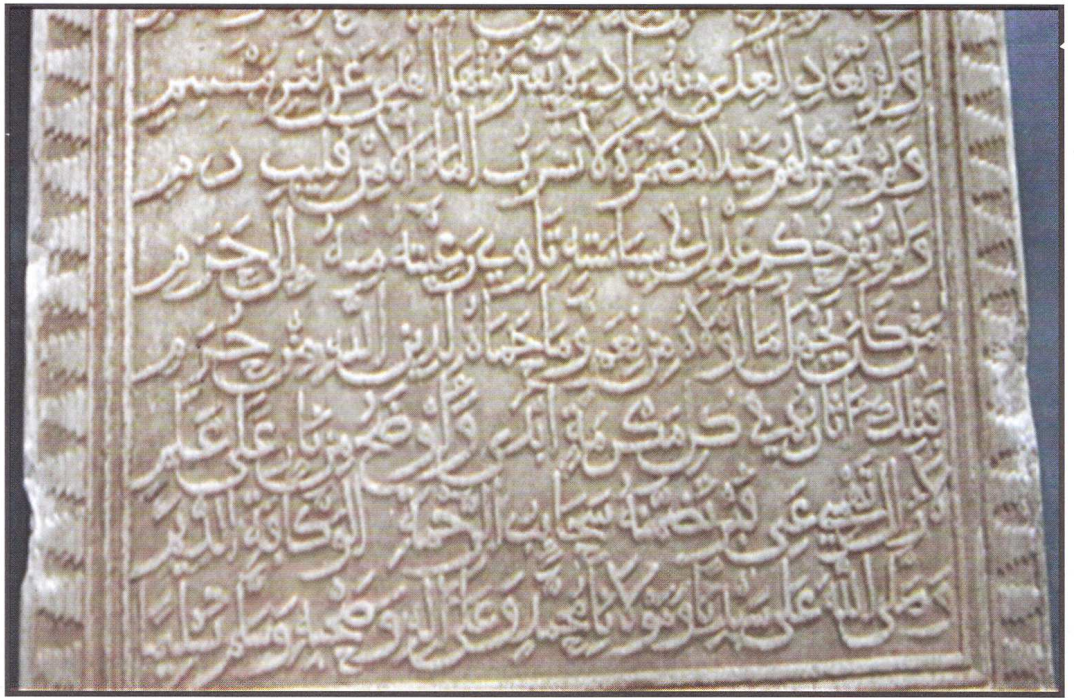 ولم يغاد العدى منه ببادرة يفتر منها الهدى عن ثغر مبتسم
ولم يجهز لهم خيلا مضمرة لا تشرب الماء الا من قليب دم
ولم يقم حكم عدل في سياسته تاوي رعيته منه الى حرم
من كان يجهل ما اولاه من نعم وما حماه لدين الله من حرم
فتلك اثاره في كل مكرمة ابدى واوضح من نار على علم
لا زال تهمي على قبر تضمنه سحايب الرحمة الوكافة الديم
وصلى الله على سيدنا ومولانا محمد وعلى اله وصحبه وسلم تسليما